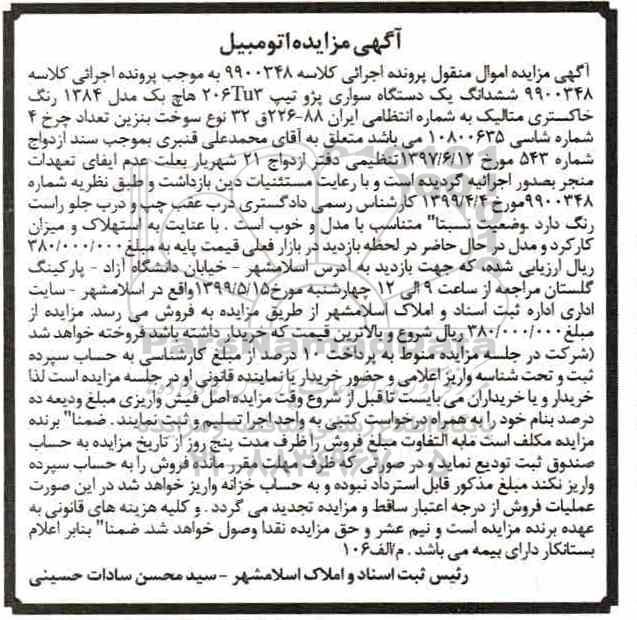 آگهی مزایده اتومبیل
آگهی مزایده اموال منقول پرونده اجرائی کلاسه ۹۹۰۰۳۴۸ به موجب پرونده اجرائی کلاسه
۹۹۰۰۳۴۸ ششدانگ یک دستگاه سواری پژو تیپ ۲۰۶Tu۳ هاچ بک مدل ۱۳۸۴ رنگ
خاکستری متالیک به شماره انتظامی ایران ۸۸-۲۲۶ق ۳۲ نوع سوخت بنزین تعداد چرخ ۴
شماره شاسی ۱۰۸۰۰۶۳۵ می باشد متعلق به آقای محمدعلی قنبری بموجب سند ازدواج
شماره ۵۴۳ مورخ ۱۳۹۷/۶/۱۲تنظیمی دفتر ازدواج ۲۱ شهریار بعلت عدم ایفای تعهدات
منجر بصدور اجرائیه گردیده است و با رعایت مستثنیات دین بازداشت و طبق نظریه شماره
۹۹۰۰۳۴۸مورخ ۱۳۹۹/۴/۴ کارشناس رسمی دادگستری درب عقب چپ و درب جلو راست
رنگ دارد .وضعیت نسبتا" متناسب با مدل و خوب است . با عنایت به استهلاک و میزان
کارکرد و مدل در حال حاضر در لحظه بازدید در بازار فعلی قیمت پایه به مبلغ۳۸۰/۰۰۰/۰۰۰
ریال ارزیابی شده، که جهت بازدید به آدرس اسلامشهر - خیابان دانشگاه آزاد - پارکینگ
گلستان مراجعه از ساعت ۹ الی ۱۲ چهارشنبه مورخ۱۳۹۹/۵/۱۵واقع در اسلامشهر - سایت
اداری اداره ثبت اسناد و املاک اسلامشهر از طریق مزایده به فروش می رسد. مزایده از
مبلغ۳۸۰/۰۰۰/۰۰۰ ریال شروع و بالاترین قیمت که خریدار داشته باشد فروخته خواهد شد
(شرکت در جلسه مزایده منوط به پرداخت ۱۰ درصد از مبلغ کارشناسی به حساب سپرده
ثبت و تحت شناسه واریز اعلامی و حضور خریدار یا نماینده قانونی او در جلسه مزایده است لذا
خریدار و یا خریداران می بایست تا قبل از شروع وقت مزایده اصل فیش واریزی مبلغ ودیعه ده
درصد بنام خود را به همراه درخواست کتبی به واحد اجرا تسلیم و ثبت نمایند . ضمنا" برنده
مزایده مکلف است مابه التفاوت مبلغ فروش را ظرف مدت پنج روز از تاریخ مزایده به حساب
صندوق ثبت تودیع نماید و در صورتی که ظرف مهلت مقرر مانده فروش را به حساب سپرده
واریز نکند مبلغ مذکور قابل استرداد نبوده و به حساب خزانه واریز خواهد شد در این صورت
عملیات فروش از درجه اعتبار ساقط و مزایده تجدید می گردد . و کلیه هزینه های قانونی به
عهده برنده مزایده است و نیم عشر و حق مزایده نقدا وصول خواهد شد. ضمنا" بنابر اعلام
بستانکار دارای بیمه می باشد . م/الف۱۰۶
رئیس ثبت اسناد و املاک اسلامشهر - سید محسن سادات حسینی